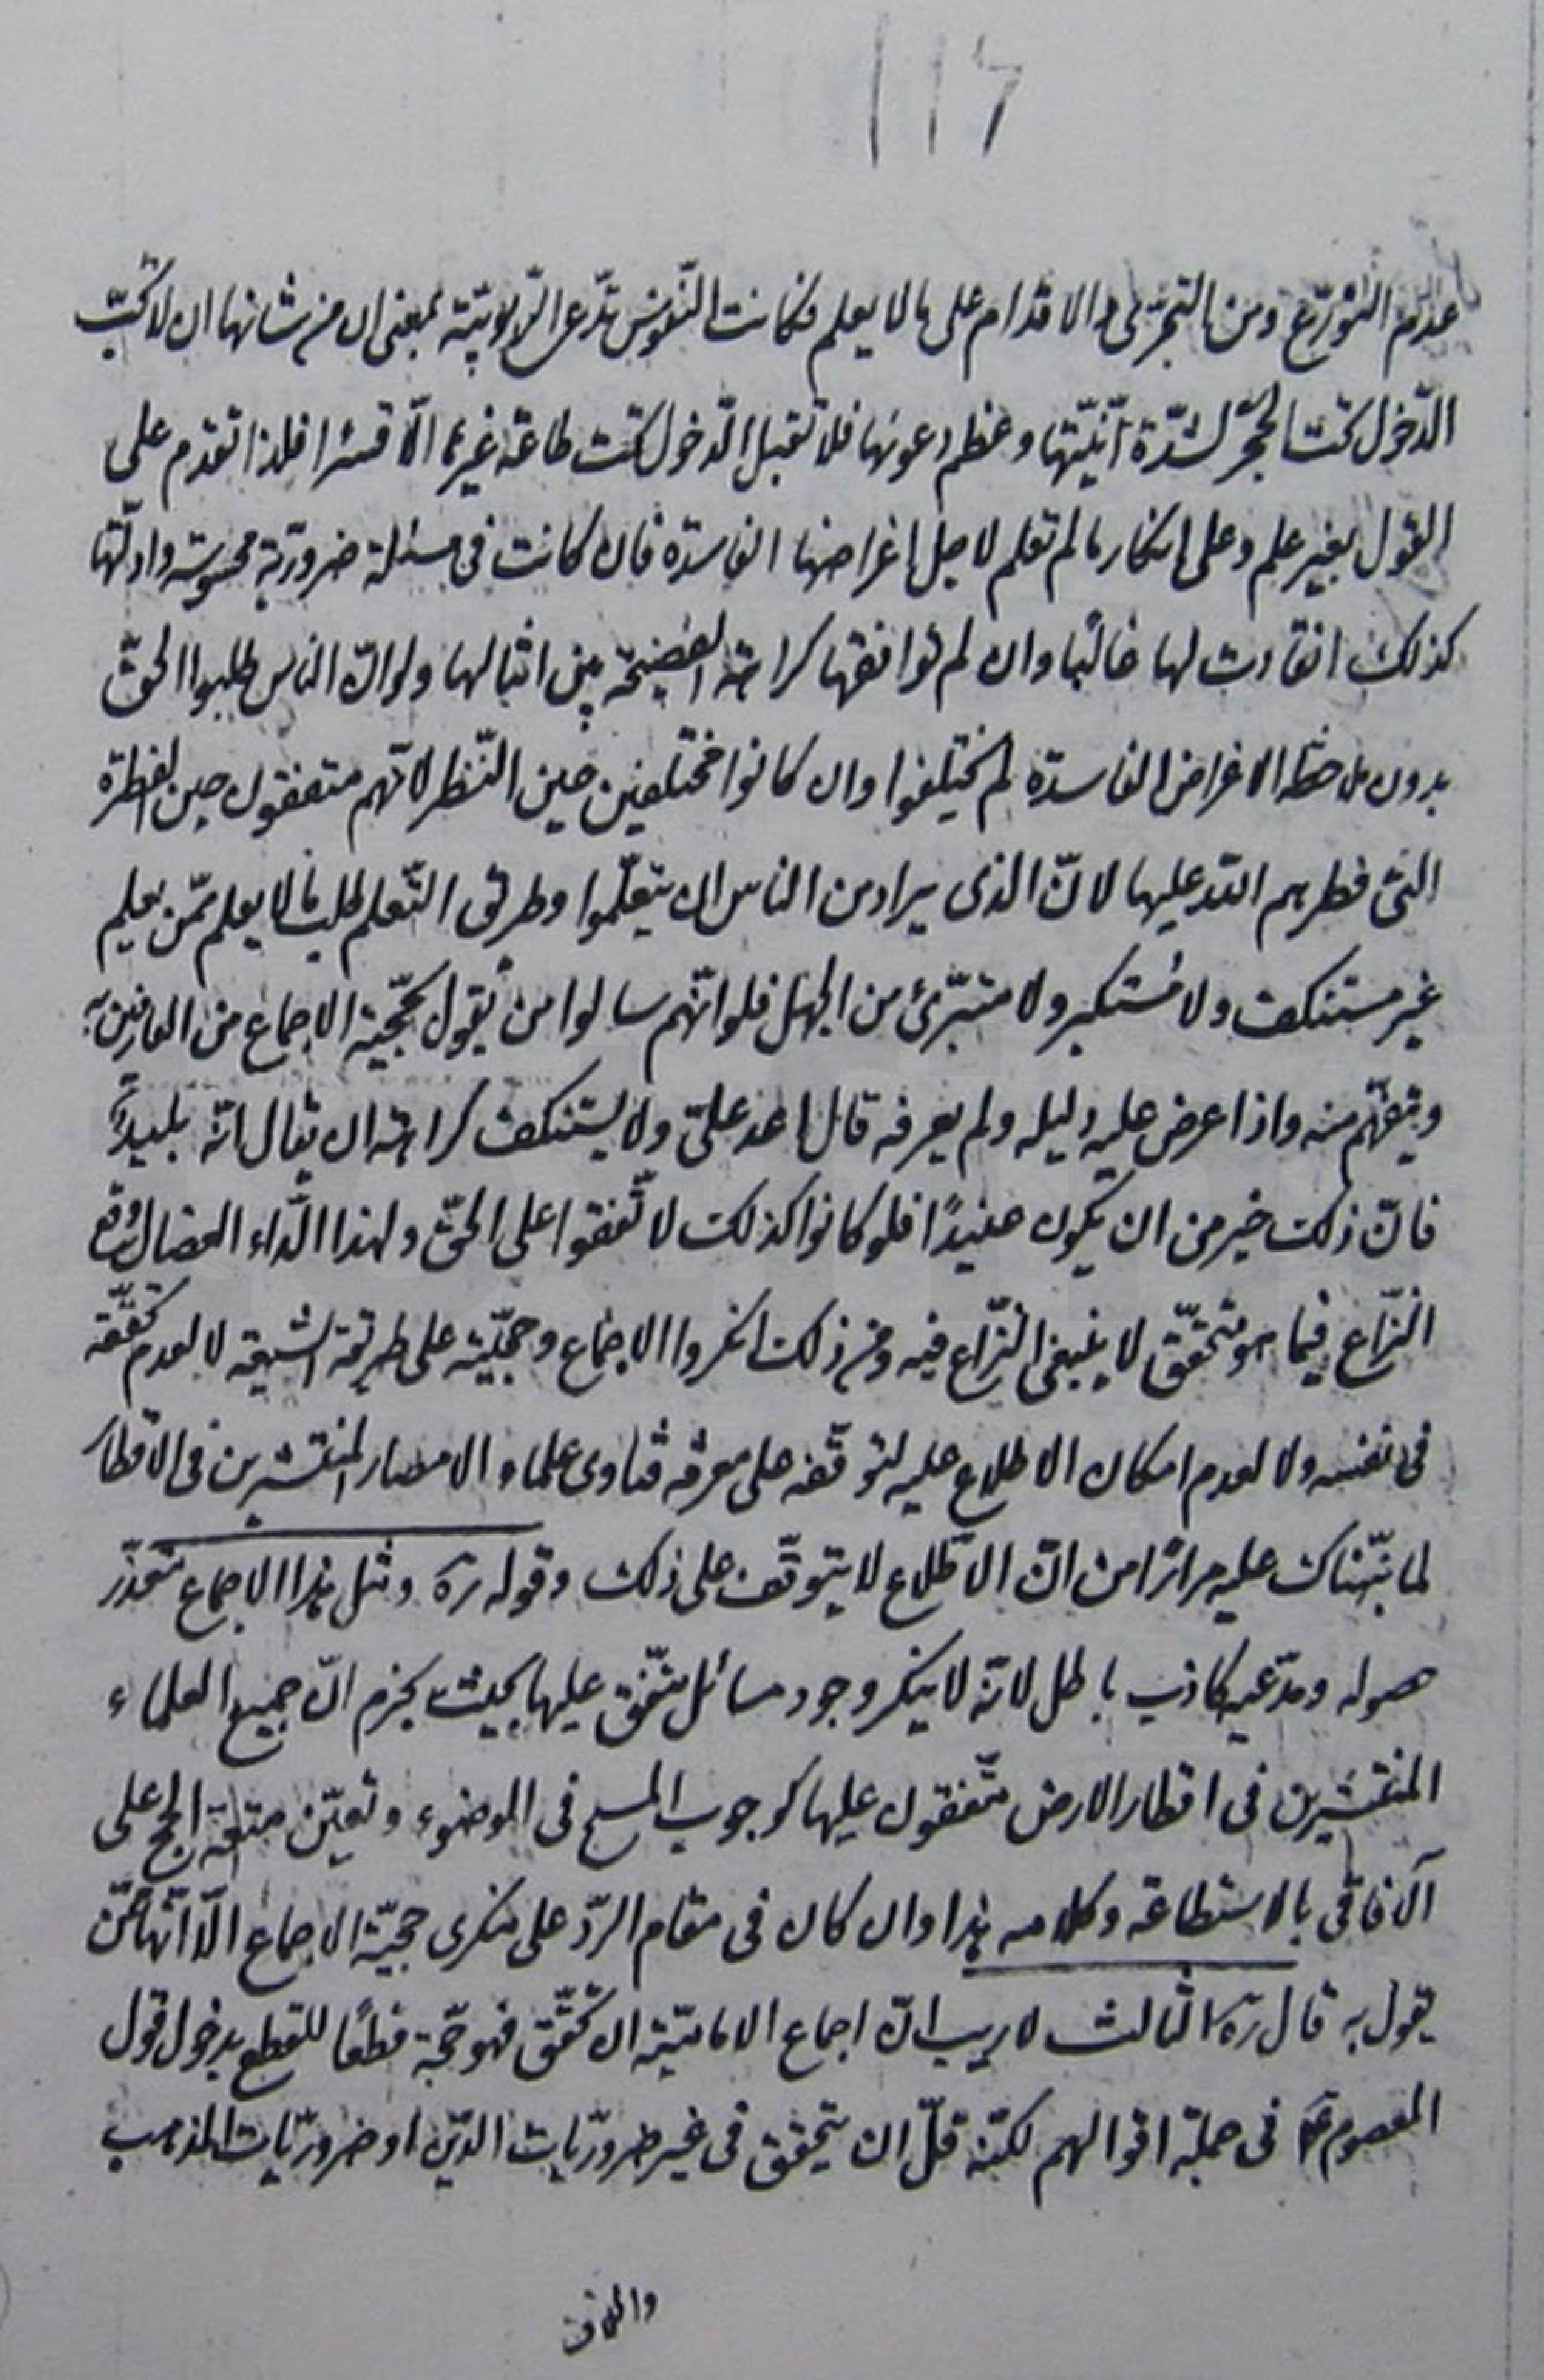 ١١٦
عدم التورّع ومن التجرّى والاقدام على ما لا يعلم فكانت النّفوس تدّعى الرّبوبيّة بمعنى ان من شانها ان لا تحبّ
الدّخول تحت الحجر لشدّة انّيّتها وعظم دعوتها فلا تقبل الدّخول تحت طاعة غيرها الّا قسرا فلذا تقدم على
القول بغير علم وعلى انكار ما لم تعلم لاجل اغراضها الفاسدة فان كانت فى مسئلة ضروريّة محسوسة وادلّتها
كذلك انقادت لها غالبًا وان لم توافقها كراهة الفضيحة بين امثالها ولو انّ الناس طلبوا الحقّ
بدون ملاحظه الاغراض الفاسدة لم يختلفوا وان كانوا مختلفين حين النّظر لانّهم متفقون حين الفطرة
التى فطرهم اللّه عليها لانّ الذى يراد من الناس ان يتعلّموا وطريق التّعلم طلب ما لا يعلم ممّن يعلم
غير مستنكف ولا مستكبر ولا متبرّئ من الجهل فلو انّهم سالوا من يقول بحجّية الاجماع من العارفين به
ويتفهّم منه واذا عرض عليه دليله ولم يعرفه قال اعد علىّ ولا يستنكف كراهة ان يقال انّه بليدًا
فانّ ذلك خير من ان يكون عنيدًا فلو كانوا كذلك لاتّفقوا على الحقّ ولهذا الدّاء العضال وقع
النّزاع فيما هو متحقّق لا ينبغى النّزاع فيه ومن ذلك انكروا الاجماع وحجّيّته على طريقة الشيعة لا لعدم تحقّقه
فى نفسه ولا لعدم امكان الاطلاع عليه لتوقّفه على معرفة فتاوى علماء الامصار المنتشرين فى الاقطار
لما نبّهناك عليه مرارًا من انّ الاطّلاع لا يتوقّف على ذلك وقوله ره ومثل هذا الاجماع متعذّر
حصوله ومدّعيه كاذب باطل لانّه لا ينكر وجود مسائل متّفق عليها بحيث يجزم انّ جميع العلماء
المنتشرين فى اقطار الارض متّفقون عليها كوجوب المسح فى الوضوء وتعيّن متعة الحج على
الآفاقى بالاستطاعة وكلامه هذا وان كان فى مقام الرّد على منكرى حجيّة الاجماع الّا انّه ممّن
يقول به قال ره الثالث لا ريب انّ اجماع الاماميّة ان تحقّق فهو حجّة قطعًا للقطع بدخول قول
المعصوم ع فى جملة اقوالهم لكنّه قلّ ان يتحقق فى غير ضروريّات الدّين او ضروريّات المذهب